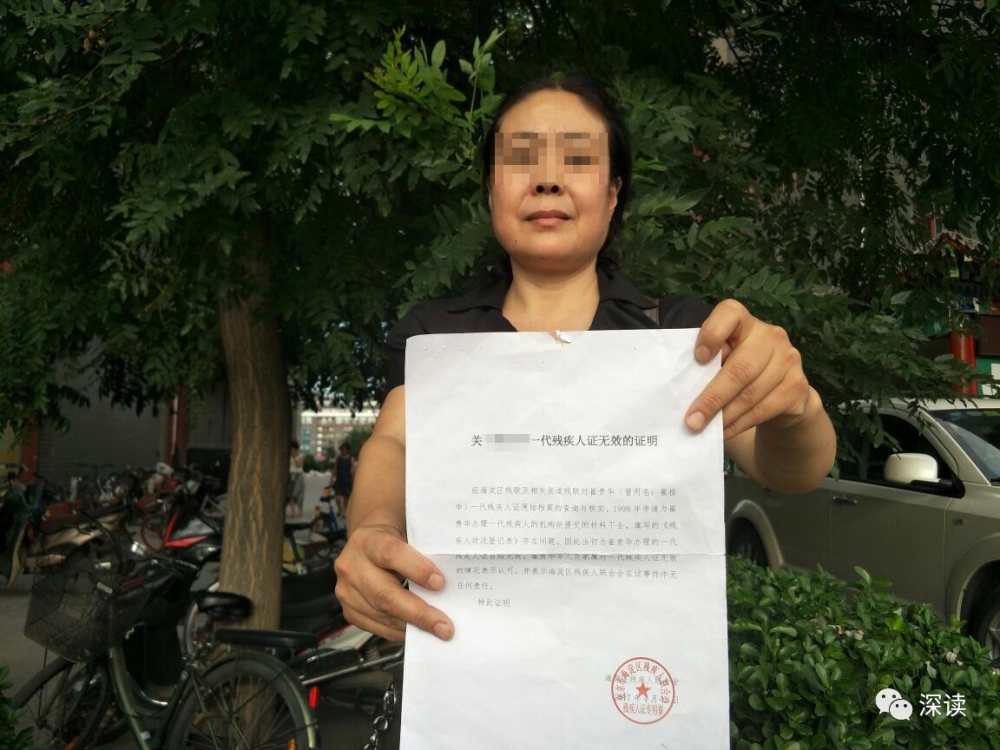 关 一代残疾人证无效的证明
经海淀区残联及相关街道残联对崔贵华（曾用名：崔桂
华）一代残疾人证原始档案的查询与核实，1998年申请为崔
贵华办理一代残疾人的机构所提交的材料不全，填写的《残
疾人状况登记表》存在问题，因此当初为崔贵华办理的一代
残疾人证自始无效。崔贵华本人及家属对一代残疾人证无效
的情况表示认可，并表示海淀区残疾人联合会在该事件中无
任何责任。
特此证明
海淀区残疾人联合会
北京市海淀区残疾人联合会
残疾人证专用章
深读